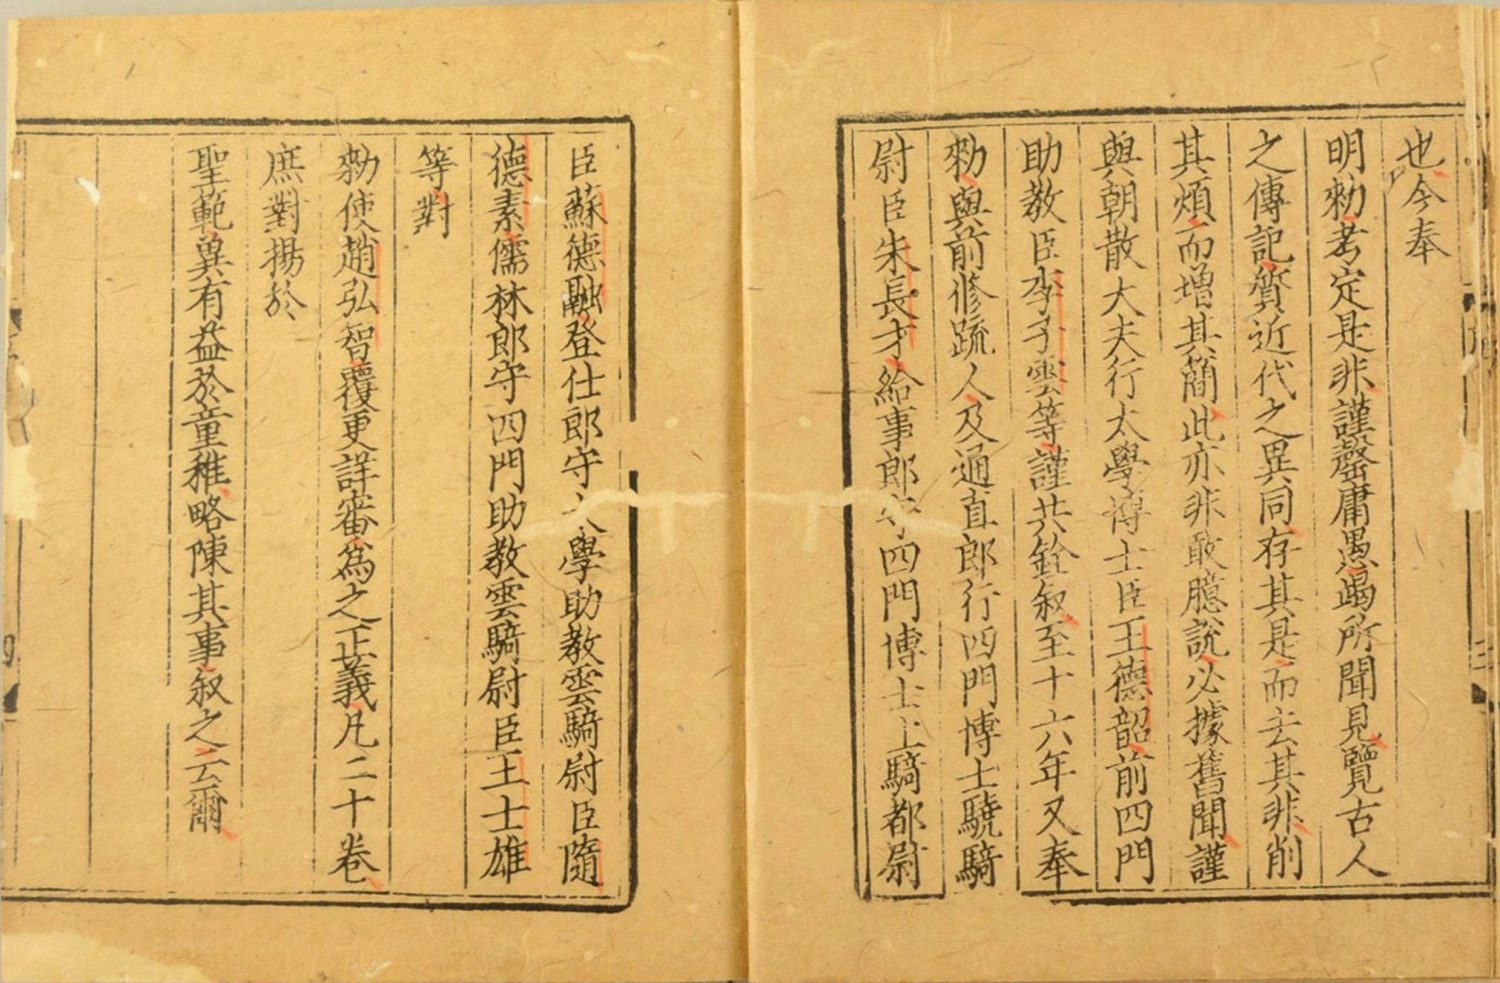 也今奉
明勑考定是非謹罄庸愚竭所聞見覽古人
之傳記質近代之異同存其是而去其非削
其煩而增其簡此亦非敢臆說必據舊聞謹
與朝散大夫行太學博士臣王德韶前四門
助教臣李子雲等謹共銓叙至十六年又奉
勑與前脩䟽人及通直郎行四門博士驍騎
尉臣朱長才給事郎守四門博士上騎都尉
臣蘇德融登仕郎守太學助教雲騎尉臣隨
德素儒林郎守四門助教雲騎尉臣王士雄
等對
勑使趙弘智覆更詳審爲之正義凡二十卷
庶對揚於
聖範兾有益於童稚略陳其事叙之云爾